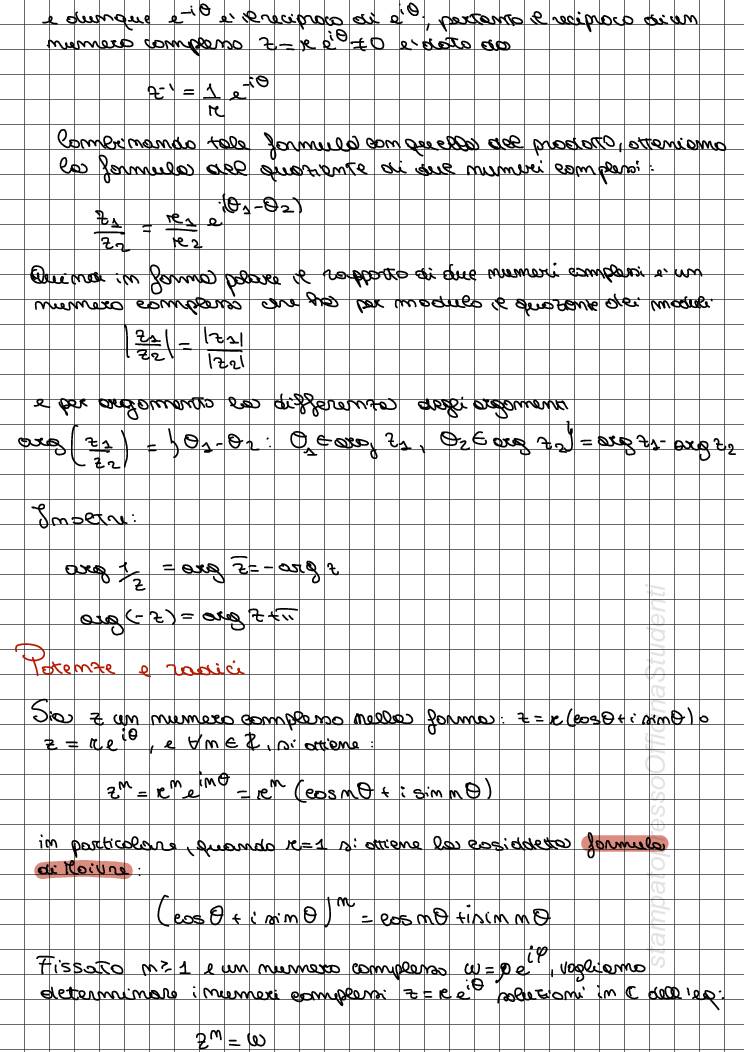 e dunque e^{-iθ} e' il reciproco di e^{iθ}; pertanto il reciproco di un
numero complesso z = r e^{iθ} ≠ 0 e' dato da
z^{-1} = \frac{1}{r} e^{-iθ}
Combinando tale formula con quella del prodotto, otteniamo
la formula del quoziente di due numeri complessi:
\frac{z_1}{z_2} = \frac{r_1}{r_2} e^{i(θ_1-θ_2)}
Quindi in forma polare il rapporto di due numeri complessi e' un
numero complesso che ha per modulo il quoziente dei moduli
|\frac{z_1}{z_2}| = \frac{|z_1|}{|z_2|}
e per argomento la differenza degli argomenti
arg(\frac{z_1}{z_2}) = {θ_1-θ_2 : θ_1 ∈ arg z_1, θ_2 ∈ arg z_2} = arg z_1 - arg z_2
Inoltre:
arg 1/z = arg \overline{z} = - arg z
arg(-z) = arg z + π
Potenze e radici
Sia z un numero complesso nella forma: z = r (cosθ + i sinθ) o
z = r e^{iθ}, e ∀n ∈ Z, si ottiene:
z^n = r^n e^{inθ} = r^n (cos nθ + i sin nθ)
in particolare, quando r=1 si ottiene la cosiddetta formula
di Moivre:
(cosθ + i sinθ)^n = cos nθ + i sin nθ
Fissato n ≥ 1 e un numero complesso ω = ρ e^{iφ}, vogliamo
determinare i numeri complessi z = r e^{iθ} soluzioni in C dell'eq:
z^n = ω
stampatopressoOfficinaStudenti